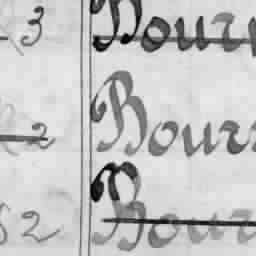 3 Bour
2 Bour
82 Bour